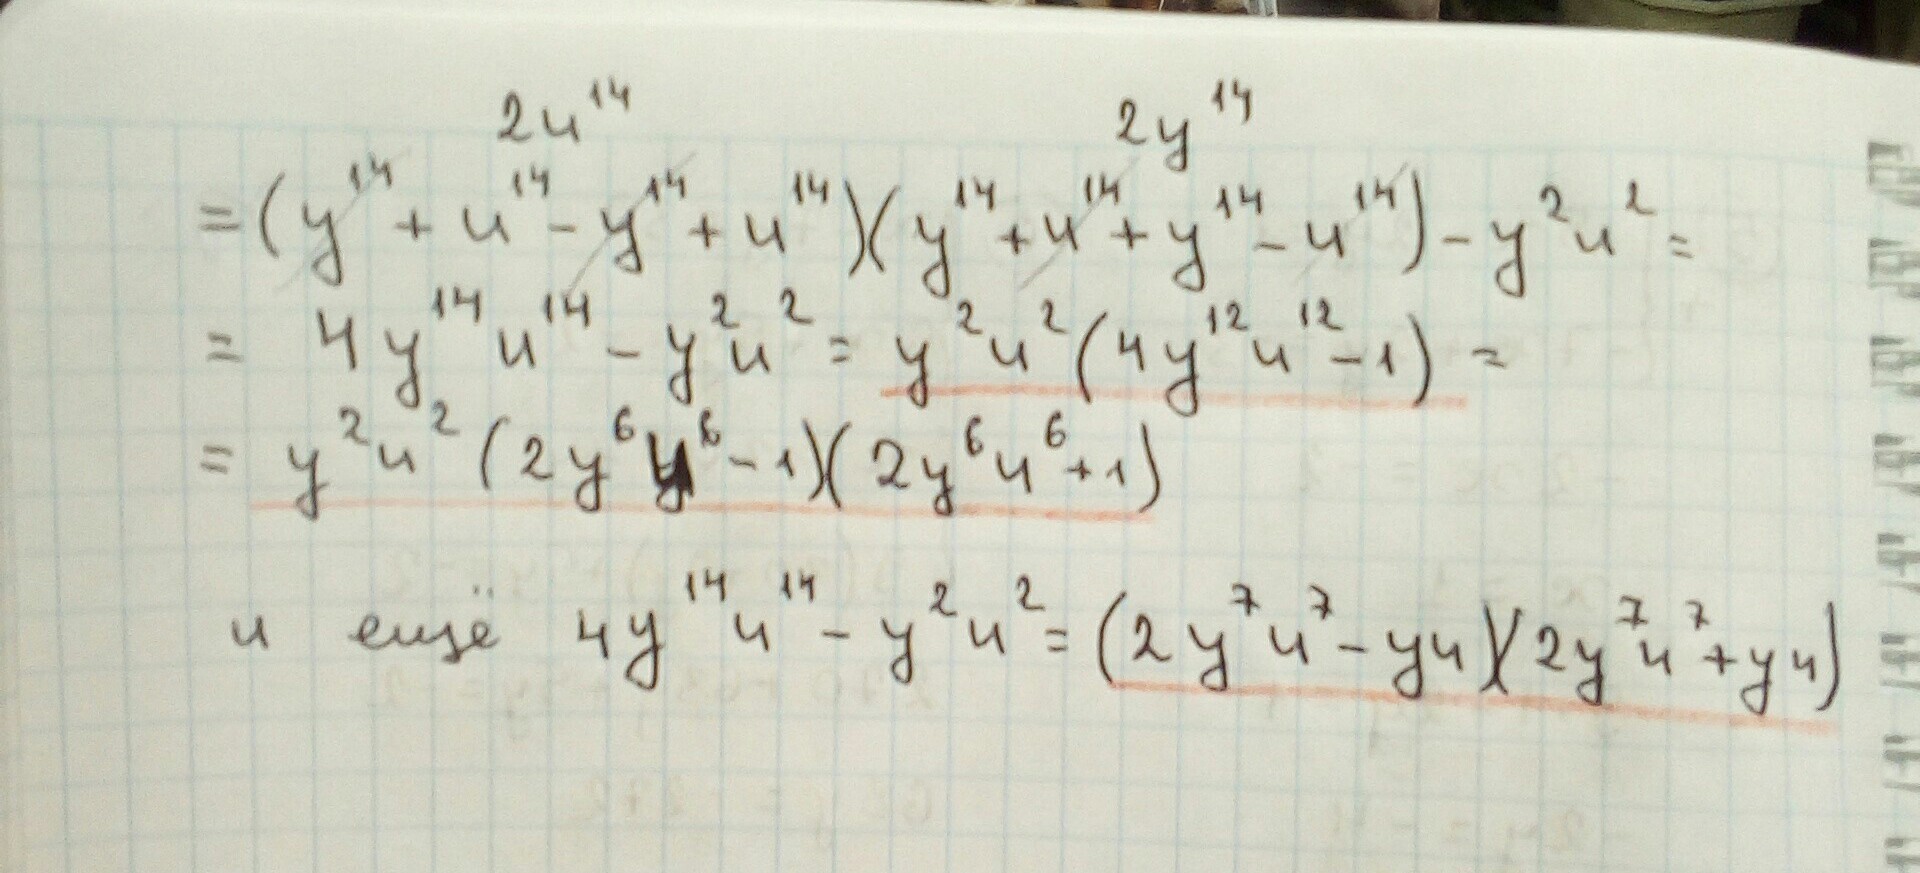 2u¹⁴ 2y¹⁴
=(y¹⁴+u¹⁴-y¹⁴+u¹⁴)(y¹⁴+u¹⁴+y¹⁴-u¹⁴)-y²u²=
= 4y¹⁴u¹⁴-y²u²=y²u²(4y¹²u¹²-1)=
= y²u²(2y⁶u⁶-1)(2y⁶u⁶+1)
и ещё 4y¹⁴u¹⁴-y²u²=(2y⁷u⁷-yu)(2y⁷u⁷+yu)